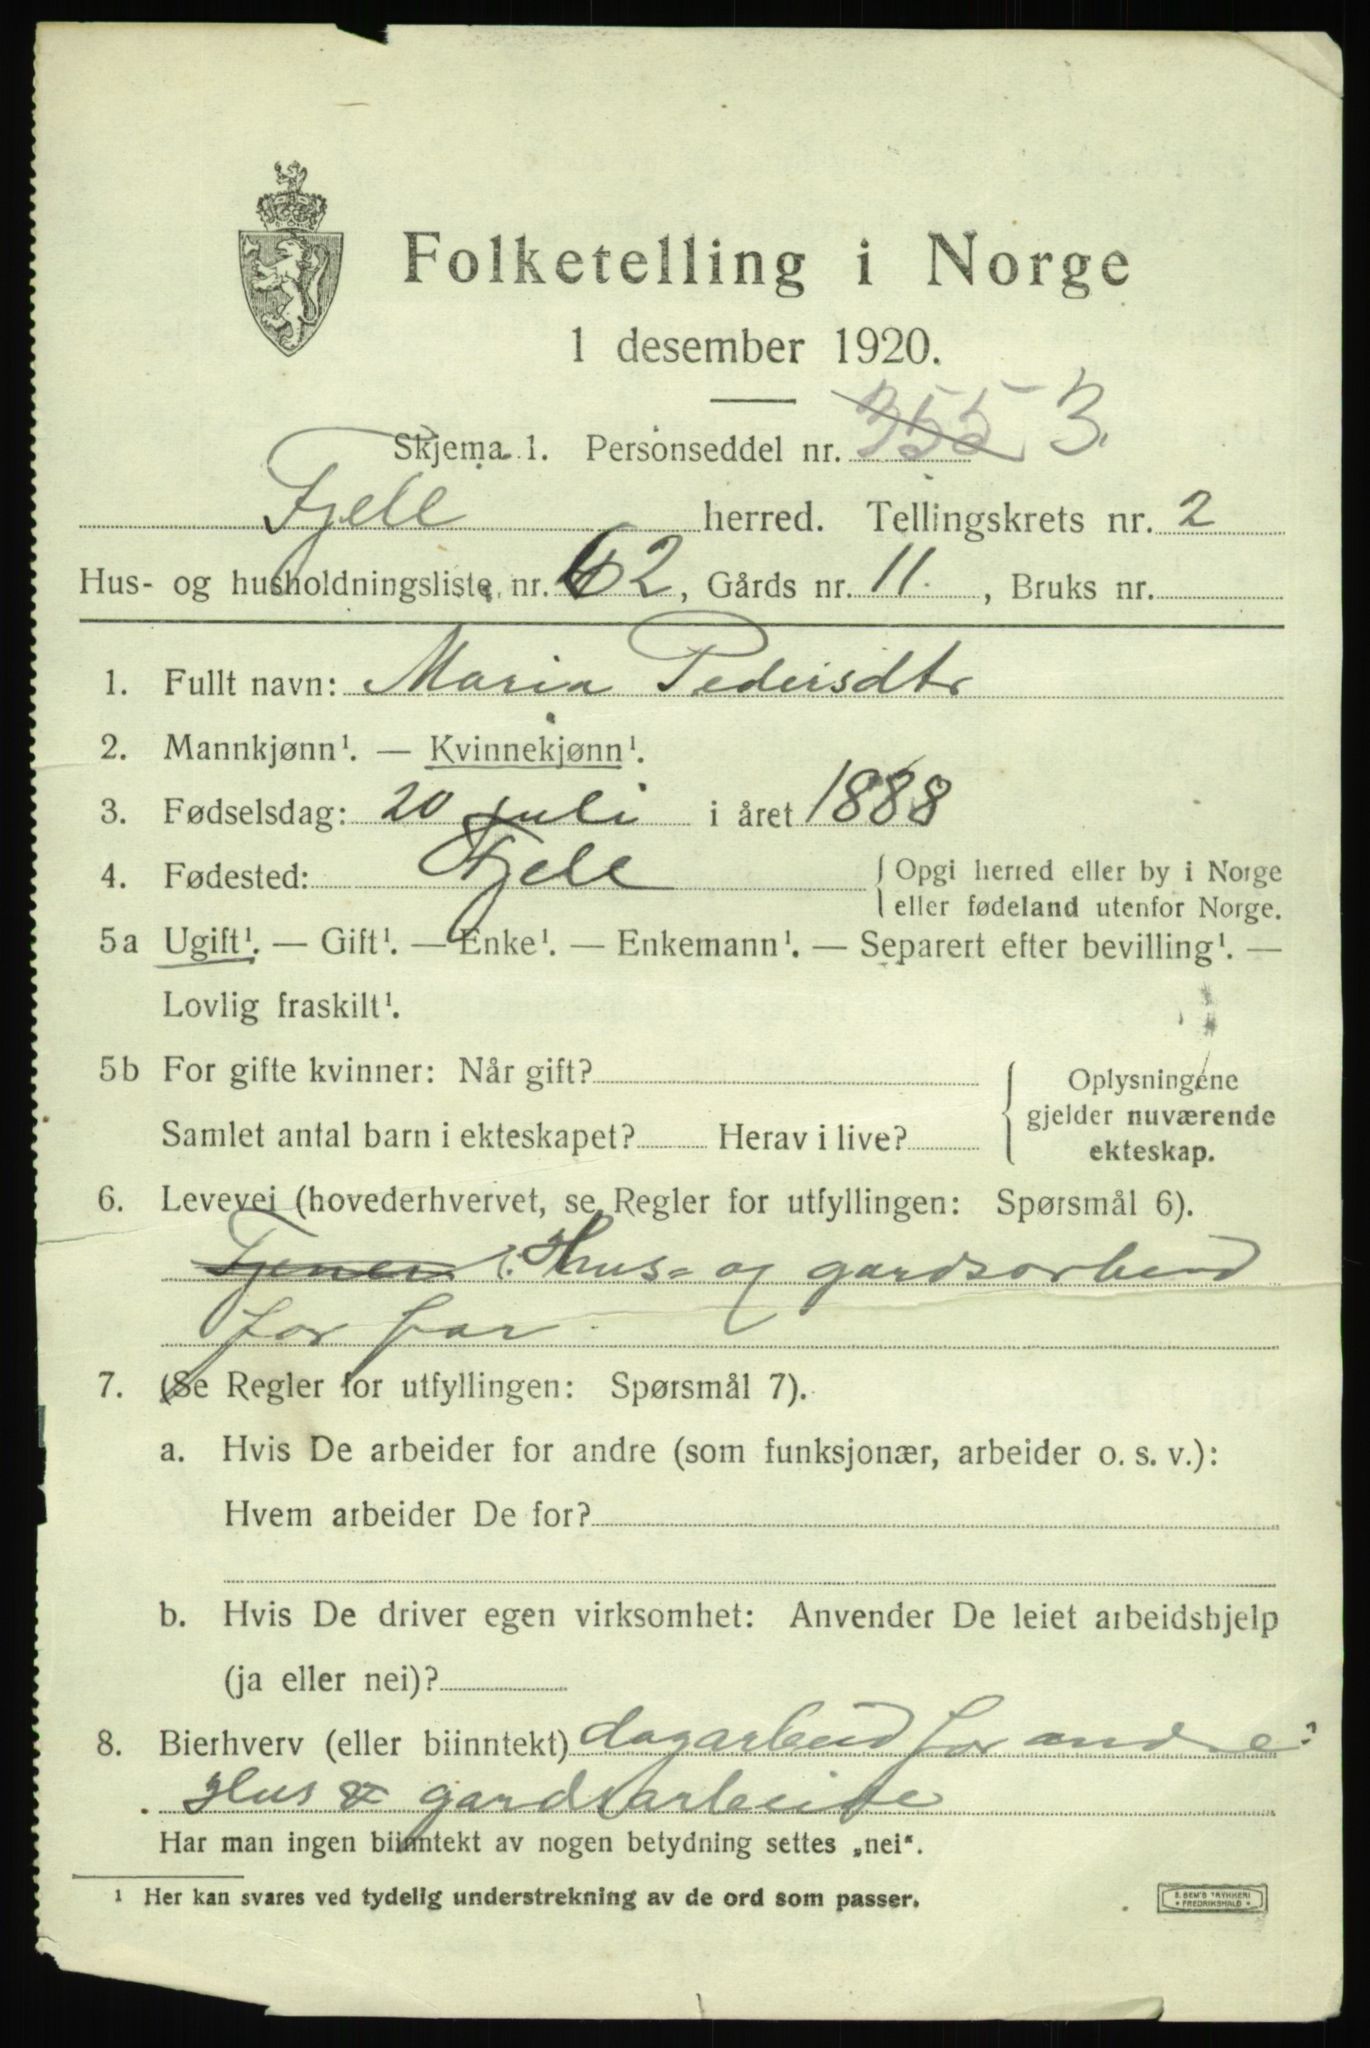 Folketelling i Norge
1 desember 1920.
Skjema 1. Personseddel nr. 355 3.
Fjell herred. Tellingskrets nr. 2
Hus- og husholdningsliste nr. 62, Gårds nr. 11., Bruks nr.
1. Fullt navn: Maria Pedersdtr
2. Mannkjønn¹. — Kvinnekjønn¹.
3. Fødselsdag: 20 juli i året 1888
4. Fødested: Fjell { Opgi herred eller by i Norge
eller fødeland utenfor Norge.
5a Ugift¹. — Gift¹. — Enke¹. — Enkemann¹. — Separert efter bevilling¹. —
Lovlig fraskilt¹.
5b For gifte kvinner: Når gift?
Samlet antal barn i ekteskapet? Herav i live?
Oplysningene
gjelder nuværende
ekteskap.
6. Levevei (hovederhvervet, se Regler for utfyllingen: Spørsmål 6).
Tjener i. Hus- og gardsarbeid
for far.
7. (Se Regler for utfyllingen: Spørsmål 7).
a. Hvis De arbeider for andre (som funksjonær, arbeider o. s. v.):
Hvem arbeider De for?
b. Hvis De driver egen virksomhet: Anvender De leiet arbeidshjelp
(ja eller nei)?
8. Bierhverv (eller biinntekt) dagarbeid for andre:
Hus & gardsarbeide
Har man ingen biinntekt av nogen betydning settes „nei“.
¹ Her kan svares ved tydelig understrekning av de ord som passer.
E. SEM'S TRYKKERI
FREDRIKSHALD